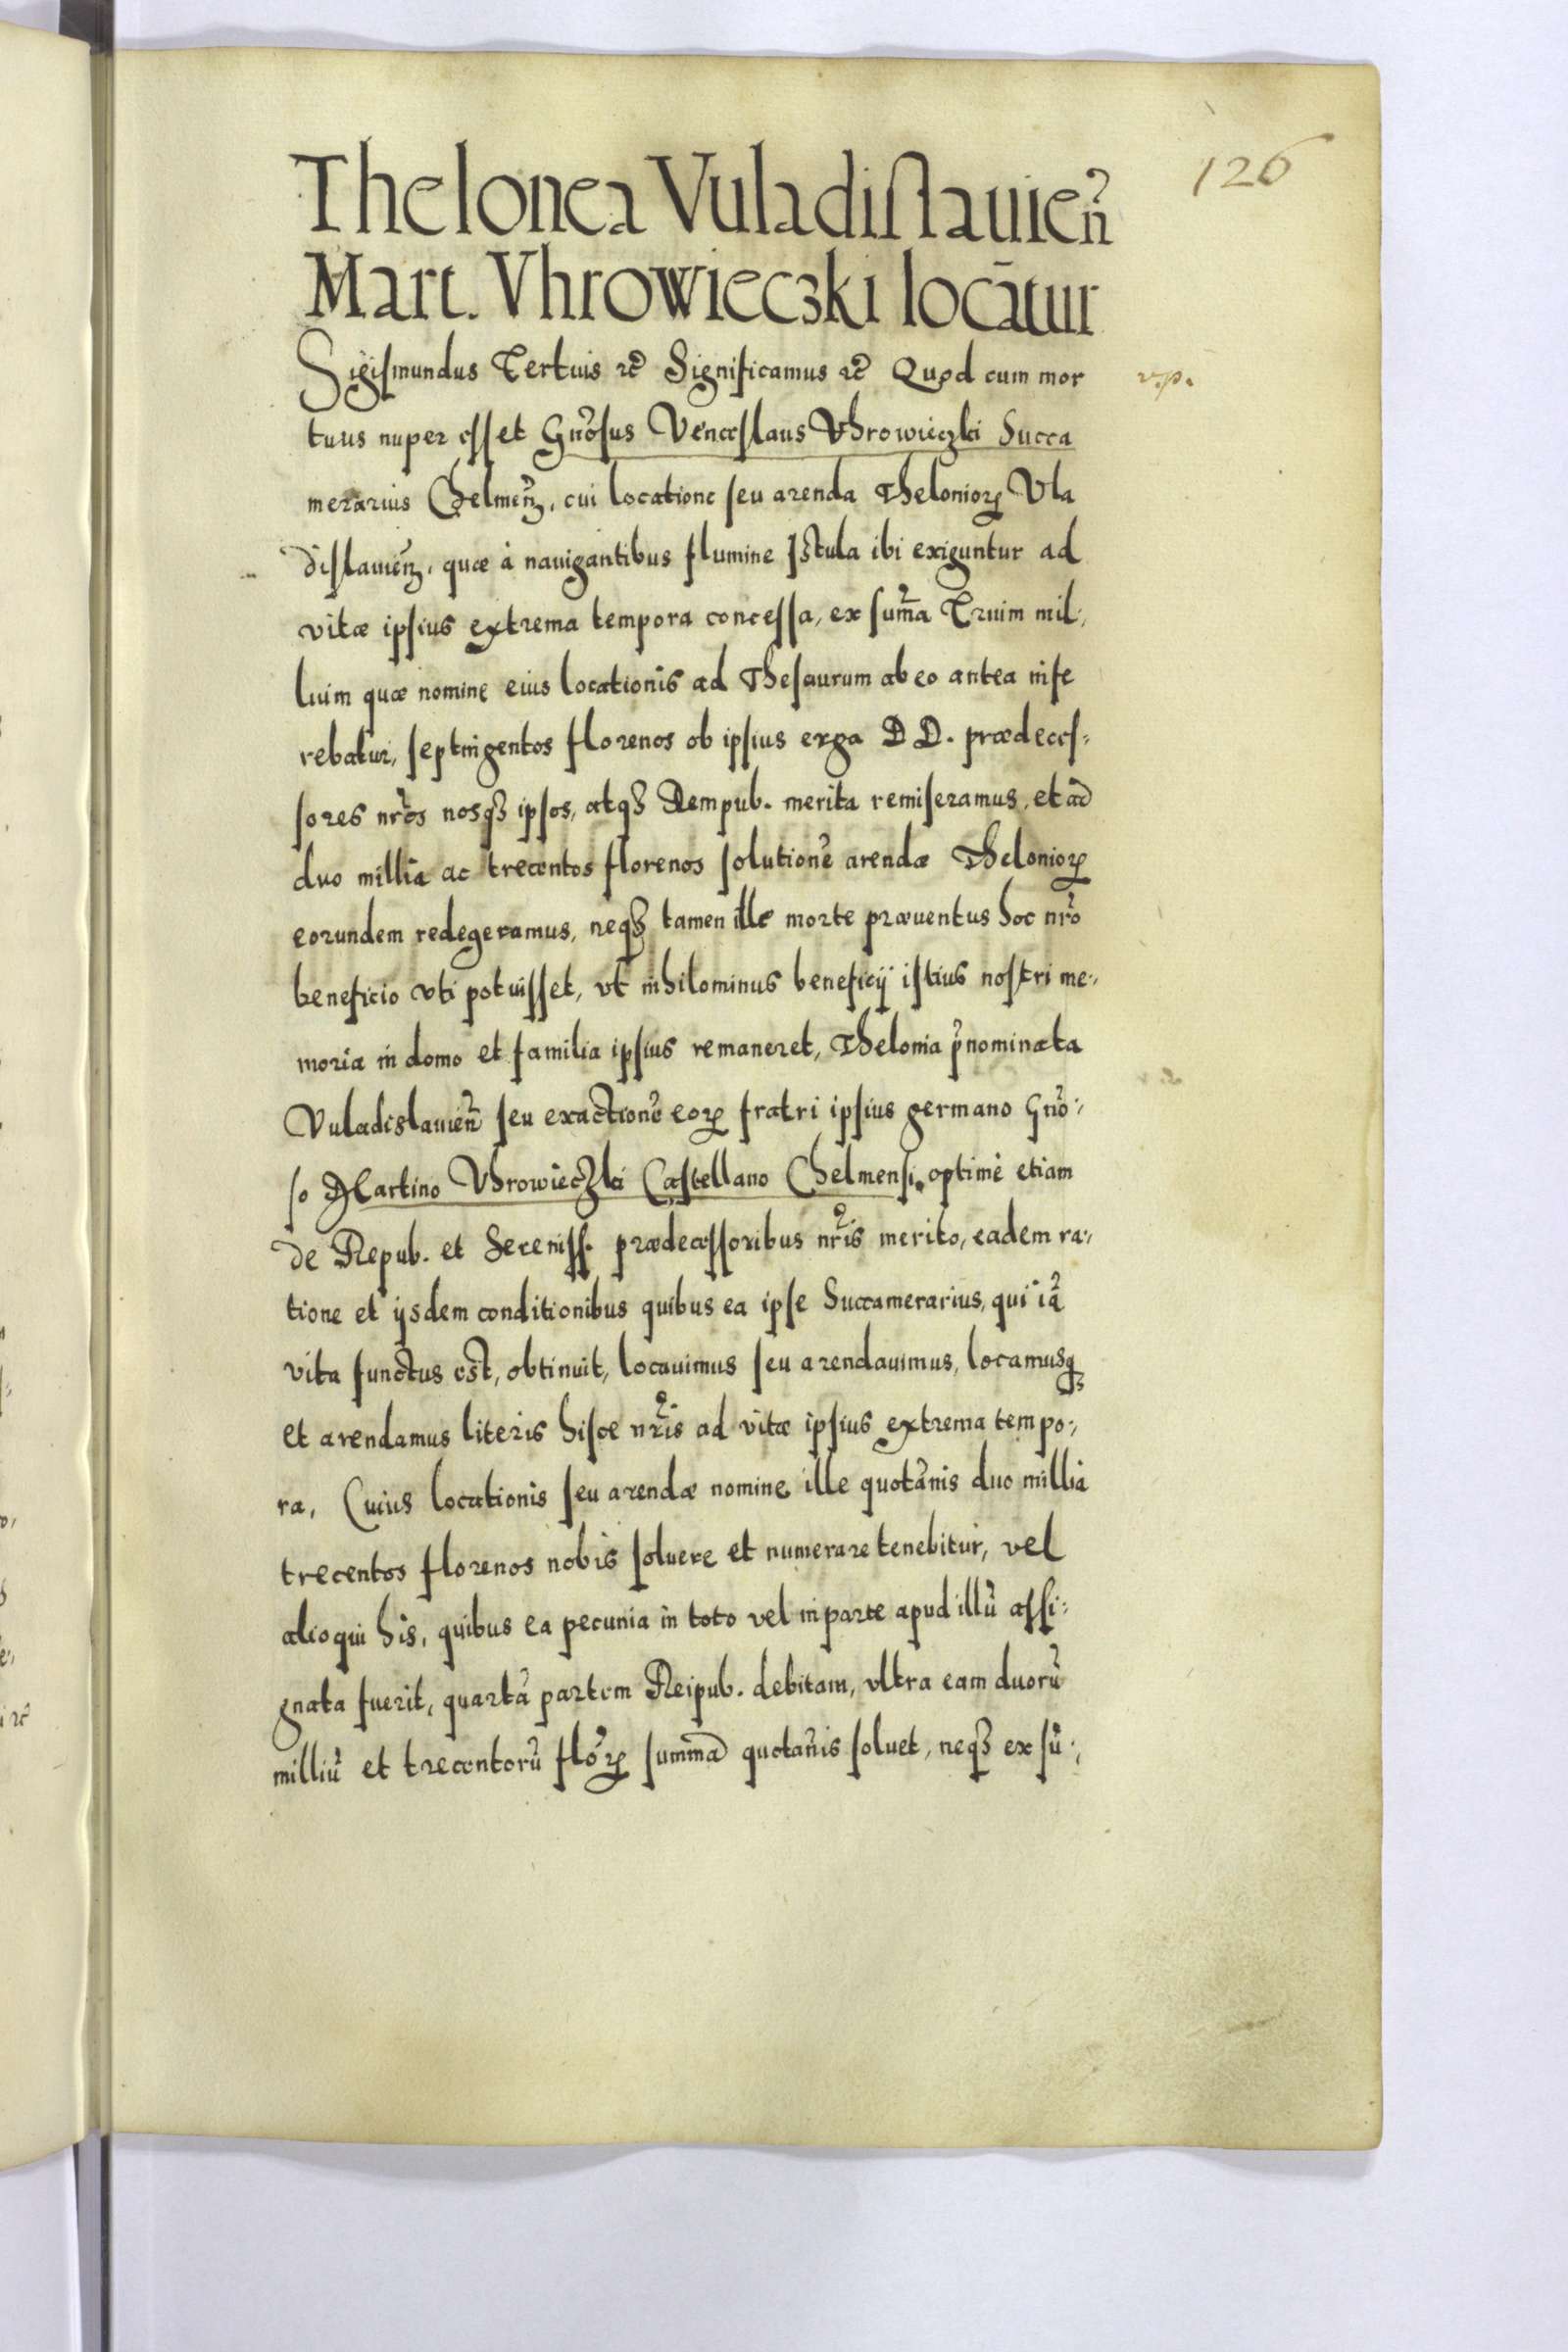 126
Thelonea Vuladislauien̄
Mart. Vhrowieczki locātur
Sigismundus Tertius etc̄ Significamus etc̄ Quod cum mor
v.p.
tuus nuper esset Gnõsus Venceslaus Vhrowieczki Succa
merarius Chelmeñ, cui locatione seu arenda Theloniorꝝ Vla
dislauieñ, quæ à nauigantibus flumine Istula ibi exiguntur ad
vitæ ipsius extrema tempora concessa, ex sum̃a Trium mil,
lium quæ nomine eius locationis ad Thesaurum ab eo antea infe
rebatur, septingentos florenos ob ipsius erga D D. prædeces:
sores nr̃os nosqꝫ ipsos, atqꝫ Rempub. merita remiseramus, et ad
duo millia ac trecentos florenos solutionẽ arendæ Theloniorꝝ
eorundem redegeramus, neqꝫ tamen ille morte præuentus hoc nr̃o
beneficio vti potuisset, vt nihilominus beneficij istius nostri me,
moria in domo et familia ipsius remaneret, Thelonia p̃nominata
Vuladislauieñ seu exactionẽ eorꝝ fratri ipsius germano Gnõ:
so Martino Vhrowieczki Castellano Chelmensi, optimè etiam
de Repub. et Sereniss. prædecessoribus nr̃is merito, eadem ra,
tione et ijsdem conditionibus quibus ea ipse Succamerarius, qui iã
vita functus est, obtinuit, locauimus seu arendauimus, locamusqꝫ
et arendamus literis hisce nr̃is ad vitæ ipsius extrema tempo,
ra, Cuius locationis seu arendæ nomine ille quotãnis duo millia
trecentos florenos nobis soluere et numerare tenebitur, vel
alioqui his, quibus ea pecunia in toto vel in parte apud illũ assi:
gnata fuerit, quartã partem Reipub. debitam, vltra eam duorũ
milliũ et trecentorũ flõrꝝ summã quotañis soluet, neqꝫ ex sũ: